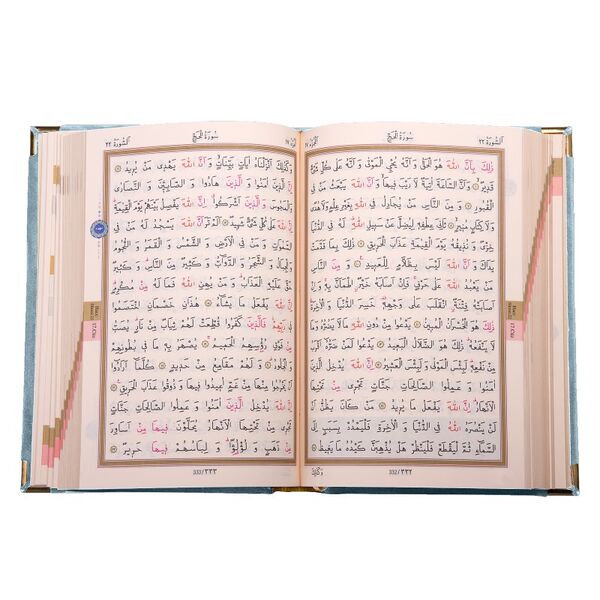 السُّورَةُ ٢٢
سُورَةُ الْحَجِّ
ذٰلِكَ بِأَنَّ اللّٰهَ هُوَ الْحَقُّ وَ أَنَّهُ يُحْيِ الْمَوْتٰى وَ أَنَّهُ عَلٰى كُلِّ شَيْءٍ
قَدِيرٌ وَ أَنَّ السَّاعَةَ اٰتِيَةٌ لَا رَيْبَ فِيهَا وَ أَنَّ اللّٰهَ يَبْعَثُ مَنْ فِي
الْقُبُورِ وَ مِنَ النَّاسِ مَنْ يُجَادِلُ فِي اللّٰهِ بِغَيْرِ عِلْمٍ وَ لَا هُدًى
وَ لَا كِتَابٍ مُنِيرٍ ثَانِيَ عِطْفِهِ لِيُضِلَّ عَنْ سَبِيلِ اللّٰهِ لَهُ فِي الدُّنْيَا
خِزْيٌ وَ نُذِيقُهُ يَوْمَ الْقِيٰمَةِ عَذَابَ الْحَرِيقِ ذٰلِكَ بِمَا قَدَّمَتْ
يَدَاكَ وَ أَنَّ اللّٰهَ لَيْسَ بِظَلَّامٍ لِلْعَبِيدِ وَ مِنَ النَّاسِ
مَنْ يَعْبُدُ اللّٰهَ عَلٰى حَرْفٍ فَإِنْ أَصَابَهُ خَيْرٌ اطْمَأَنَّ بِهِ وَ إِنْ
أَصَابَتْهُ فِتْنَةٌ انْقَلَبَ عَلٰى وَجْهِهِ خَسِرَ الدُّنْيَا وَ الْاٰخِرَةَ
ذٰلِكَ هُوَ الْخُسْرَانُ الْمُبِينُ يَدْعُو مِنْ دُونِ اللّٰهِ مَا لَا يَضُرُّهُ وَ مَا
لَا يَنْفَعُهُ ذٰلِكَ هُوَ الضَّلَالُ الْبَعِيدُ يَدْعُو لَمَنْ ضَرُّهُ أَقْرَبُ
مِنْ نَفْعِهِ لَبِئْسَ الْمَوْلٰى وَ لَبِئْسَ الْعَشِيرُ إِنَّ اللّٰهَ يُدْخِلُ الَّذِينَ
اٰمَنُوا وَ عَمِلُوا الصَّالِحَاتِ جَنَّاتٍ تَجْرِي مِنْ تَحْتِهَا
الْأَنْهَارُ إِنَّ اللّٰهَ يَفْعَلُ مَا يُرِيدُ مَنْ كَانَ يَظُنُّ أَنْ لَنْ
يَنْصُرَهُ اللّٰهُ فِي الدُّنْيَا وَ الْاٰخِرَةِ فَلْيَمْدُدْ بِسَبَبٍ إِلَى
السَّمَاءِ ثُمَّ لْيَقْطَعْ فَلْيَنْظُرْ هَلْ يُذْهِبَنَّ كَيْدُهُ مَا يَغِيظُ
وَكَذٰلِكَ
332/٣٣٢
السُّورَةُ ٢٢
سُورَةُ الْحَجِّ
وَ كَذٰلِكَ أَنْزَلْنَاهُ اٰيَاتٍ بَيِّنَاتٍ وَ أَنَّ اللّٰهَ يَهْدِي مَنْ يُرِيدُ
إِنَّ الَّذِينَ اٰمَنُوا وَ الَّذِينَ هَادُوا وَ الصَّابِئِينَ وَ النَّصَارٰى
وَ الْمَجُوسَ وَ الَّذِينَ أَشْرَكُوا إِنَّ اللّٰهَ يَفْصِلُ بَيْنَهُمْ يَوْمَ الْقِيٰمَةِ
إِنَّ اللّٰهَ عَلٰى كُلِّ شَيْءٍ شَهِيدٌ أَلَمْ تَرَ أَنَّ اللّٰهَ يَسْجُدُ لَهُ مَنْ فِي
السَّمٰوَاتِ وَ مَنْ فِي الْأَرْضِ وَ الشَّمْسُ وَ الْقَمَرُ وَ النُّجُومُ
وَ الْجِبَالُ وَ الشَّجَرُ وَ الدَّوَابُّ وَ كَثِيرٌ مِنَ النَّاسِ وَ كَثِيرٌ
حَقَّ عَلَيْهِ الْعَذَابُ وَ مَنْ يُهِنِ اللّٰهُ فَمَا لَهُ مِنْ مُكْرِمٍ
إِنَّ اللّٰهَ يَفْعَلُ مَا يَشَاءُ هٰذَانِ خَصْمَانِ اخْتَصَمُوا
فِي رَبِّهِمْ فَالَّذِينَ كَفَرُوا قُطِّعَتْ لَهُمْ ثِيَابٌ مِنْ نَارٍ يُصَبُّ
مِنْ فَوْقِ رُؤُسِهِمُ الْحَمِيمُ يُصْهَرُ بِهِ مَا فِي بُطُونِهِمْ
وَ الْجُلُودُ وَ لَهُمْ مَقَامِعُ مِنْ حَدِيدٍ كُلَّمَا أَرَادُوا
أَنْ يَخْرُجُوا مِنْهَا مِنْ غَمٍّ أُعِيدُوا فِيهَا وَ ذُوقُوا عَذَابَ الْحَرِيقِ
إِنَّ اللّٰهَ يُدْخِلُ الَّذِينَ اٰمَنُوا وَ عَمِلُوا الصَّالِحَاتِ جَنَّاتٍ
تَجْرِي مِنْ تَحْتِهَا الْأَنْهَارُ يُحَلَّوْنَ فِيهَا مِنْ أَسَاوِرَ
مِنْ ذَهَبٍ وَ لُؤْلُؤًا وَ لِبَاسُهُمْ فِيهَا حَرِيرٌ
333/٣٣٣